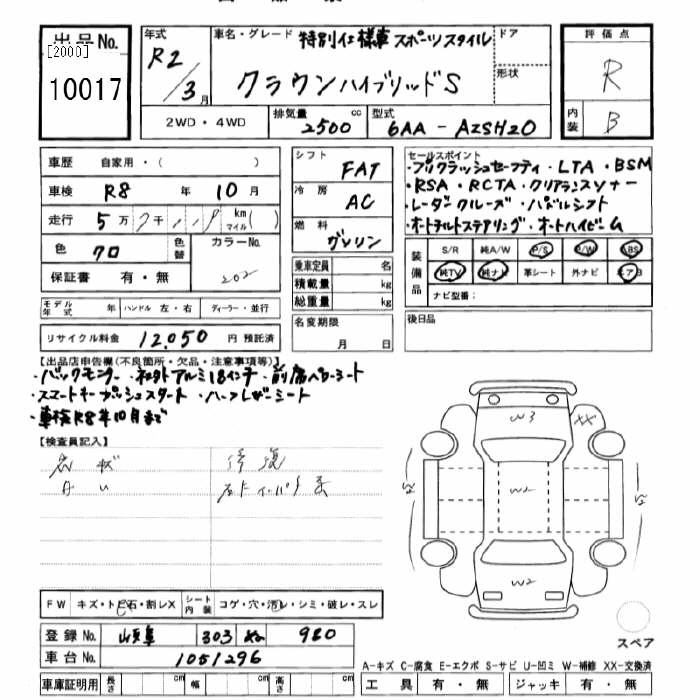 出品No.
[2000]
10017
年式
R2/3月
車名・グレード 特別仕様車 スポーツスタイル
クラウンハイブリッドS
ドア
形状
評価点
R
内装
B
2WD・4WD
排気量 2500 cc
型式 6AA-AZSH20
車歴 自家用・( )
車検 R8 年 10 月
走行 5万 7千 km マイル ( )
色 クロ 色替
カラーNo. 202
保証書 有・無
モデル年式 年 ハンドル 左・右 ディーラー・並行
リサイクル料金 12,050 円 預託済
シフト FAT
冷房 AC
燃料 ガソリン
乗車定員 名
積載量 kg
総重量 kg
名変期限
月 日
セールスポイント
・プリクラッシュセーフティ・LTA・BSM
・RSA・RCTA・クリアランスソナー
・レーダクルーズ・パドルシフト
・オートチルトステアリング・オートハイビーム
装備品
S/R 純A/W P/S P/W ABS
純TV 純ナビ 革シート 外ナビ エアB
ナビ型番:
後日品
【出品店申告欄(不良箇所・欠品・注意事項等)】
・バックモニター・社外アルミ18インチ・前席パワーシート
・スマートキープッシュスタート・ハーフレザーシート
・車検R8年10月まで
【検査員記入】
修復
W3
XX
W2
W2
FW キズ・トビ石・割レX
シート内装 コゲ・穴・汚レ・シミ・破レ・スレ
登録No. 岐阜 303 ぬ 980
車台No. 1051296
車庫証明用 長さ cm 幅 cm 高さ cm
スペア
A-キズ C-腐食 E-エクボ S-サビ U-凹ミ W-補修 XX-交換済
工具 有・無 ジャッキ 有・無